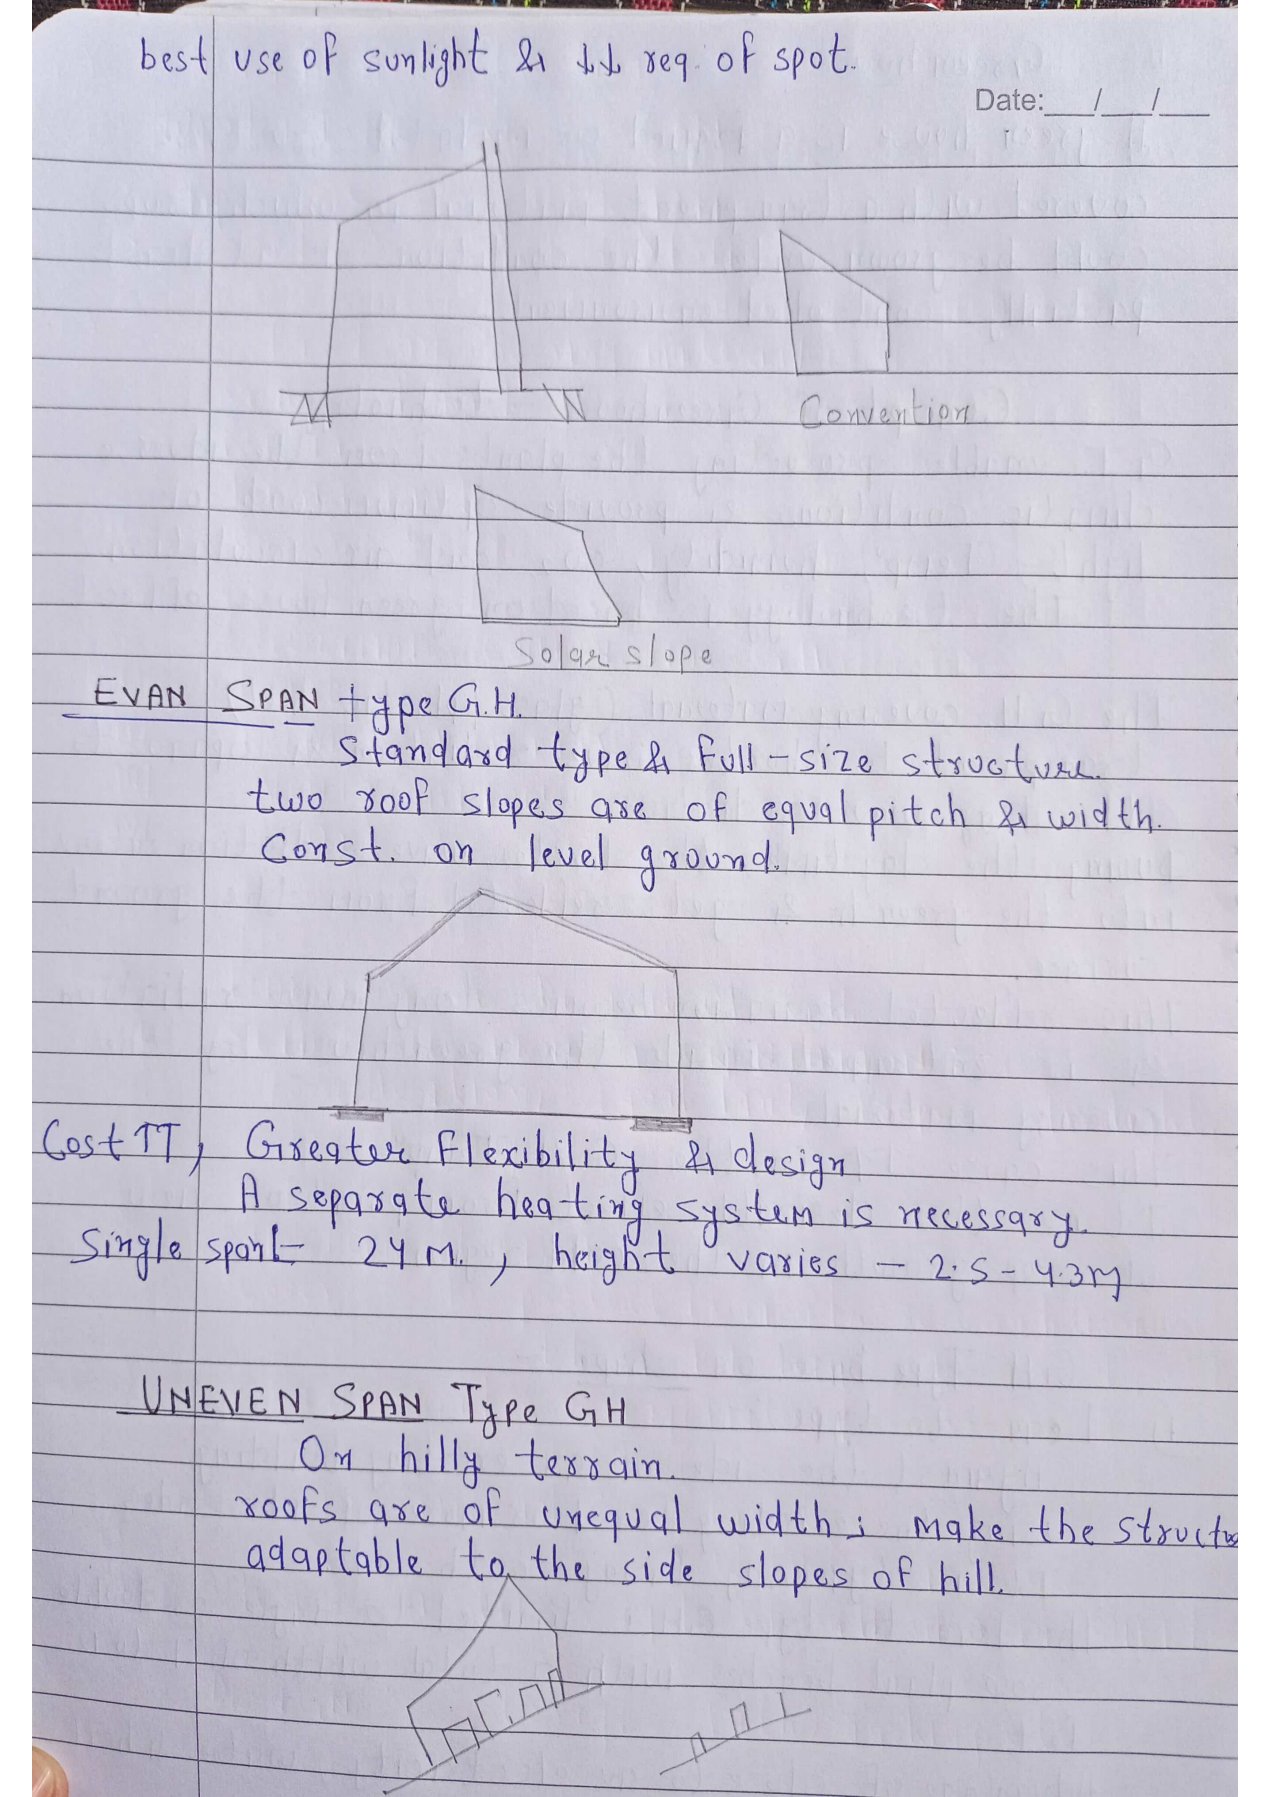 best use of sunlight & ↓↓ req. of spot.
Date:___/___/___
Convention
Solar slope
EVAN SPAN type G.H.
Standard type & Full-size structure.
two roof slopes are of equal pitch & width.
Const. on level ground.
Cost ↑↑, Greater Flexibility & design
A separate heating system is necessary.
Single span- 24 M. , height varies - 2.5 - 4.3m
UNEVEN SPAN Type GH
On hilly terrain.
roofs are of unequal width; make the
adaptable to the side slopes of hill.